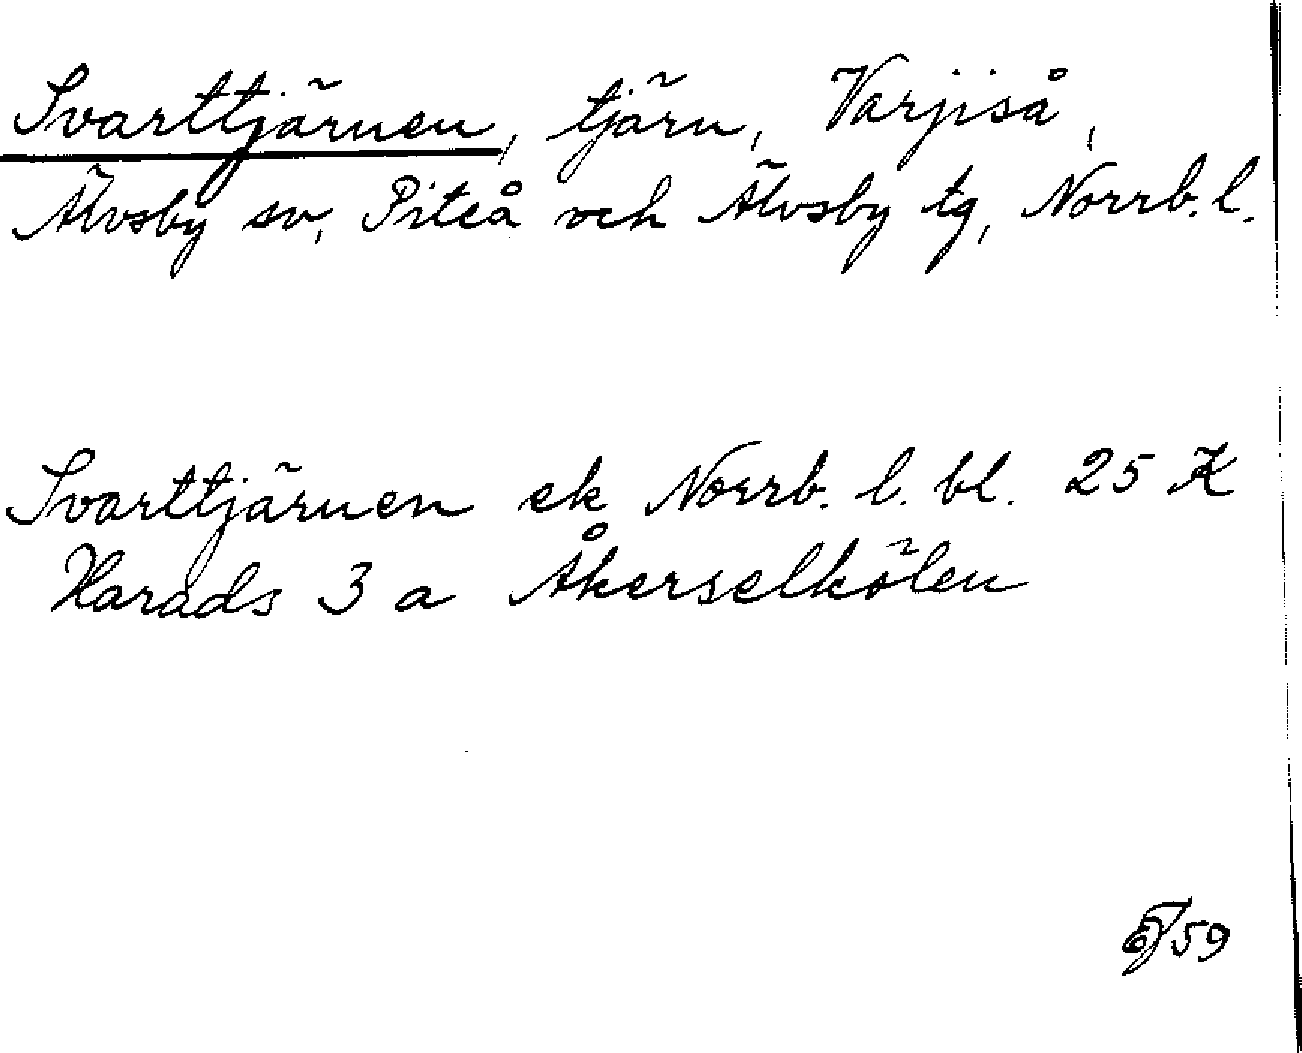 Svarttjärnen, tjärn, Varjiså,
Älvsby sn, Piteå och Älvsby tg, Norrb. l.
Svarttjärnen ek Norrb. l. bl. 25 K
Harads 3 a Åkerselkölen
59